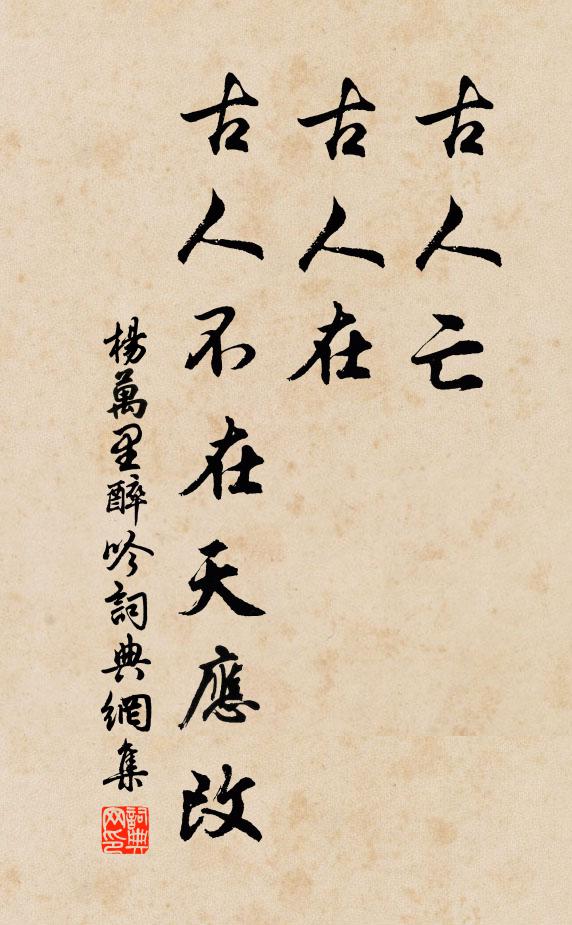 古人亡
古人在
古人不在天應改
楊萬里醉吟詞典網集
詞典网印